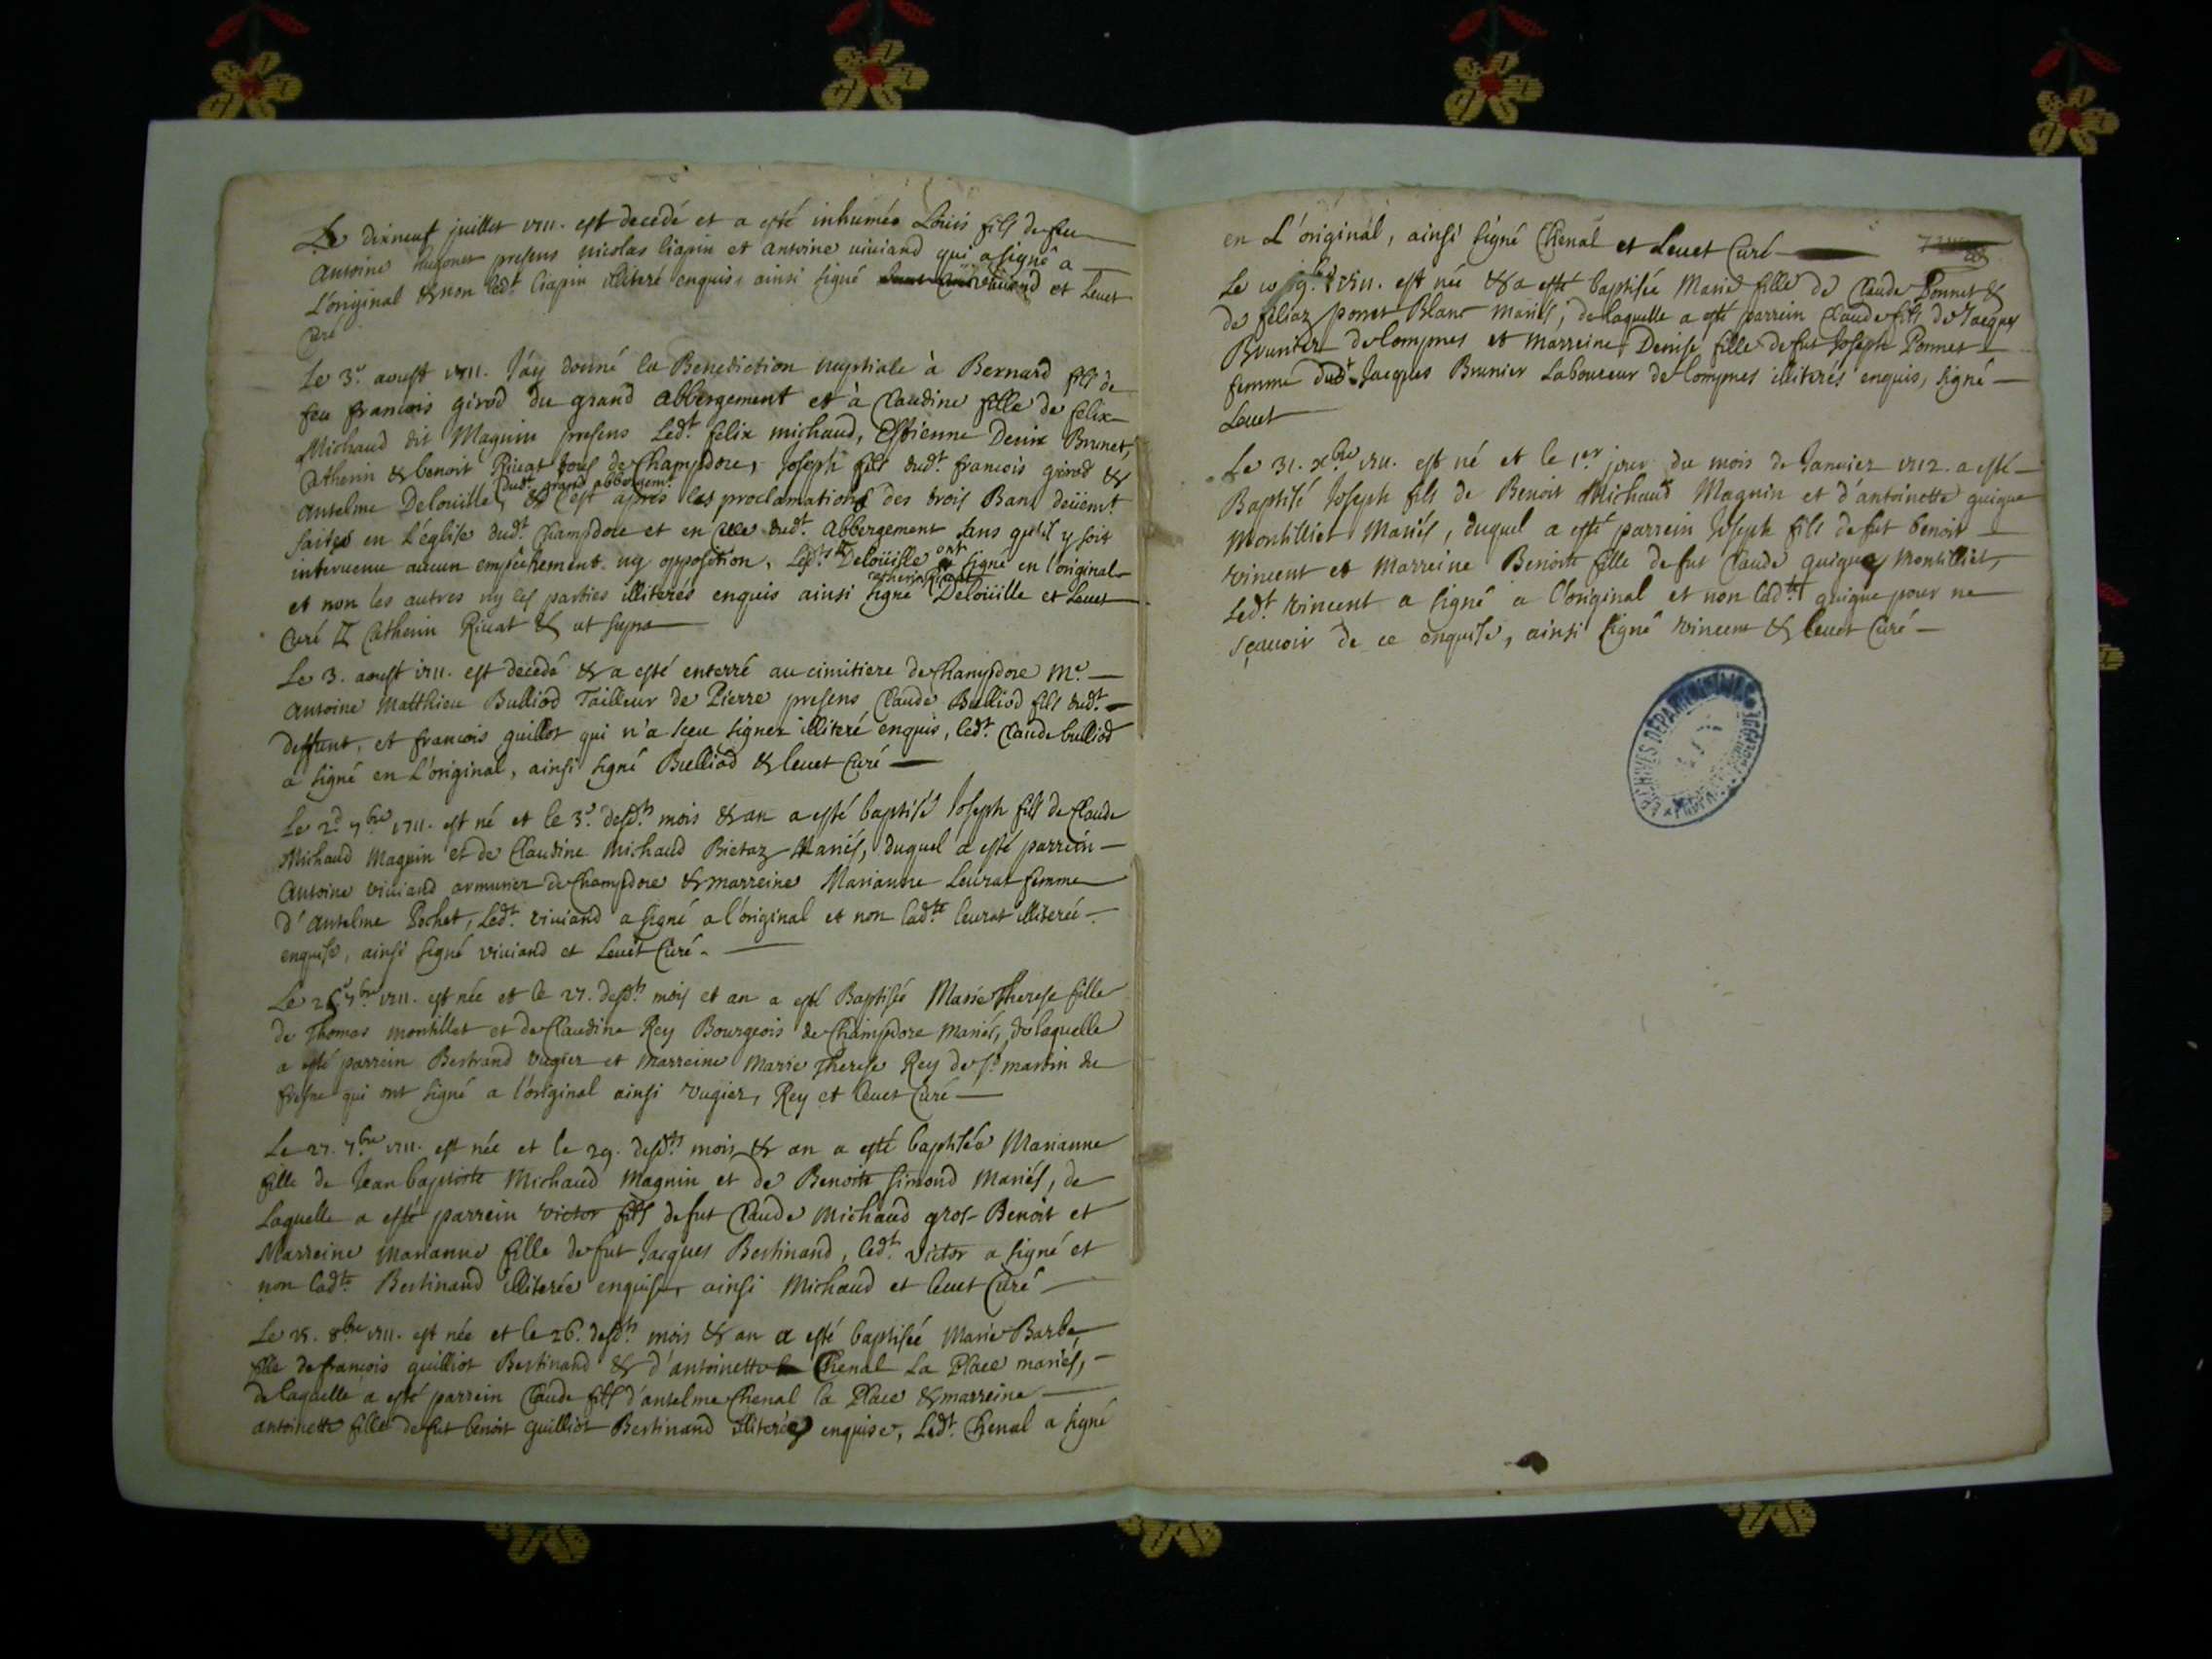 Le dixneuf juillet 1711. est decedé et a esté inhumée Loüis fils de feu
Antoine hugonet presens nicolas liapin et antoine viuiand qui a signé a
L'original & non led.t liapin illiteré enquis, ainsi signé viuiand et Leuet
Curé
Le 3.e aoust 1711. J'ay donné la Benediction nuptiale à Bernard fils de
feu francois girod du grand abbergement et à Claudine fille de felix
Michaud dit Magnin presens Led.t felix michaud, Estienne Denix Brunet,
Catherin & benoit Riuat tous de Champdore, Joseph fils dud.t francois girod &
Anselme Deloüille dud.t grand abbergem.t & c'est après les proclamations des trois Bans deüem.t
faites en L'église dud.t Champdore et en celle dud.t Abbergement sans qu'il y soit
interuenu aucun empêchement ny opposition, Led.t Deloüille ont signé en l'original
et non les autres ny les parties illiterés enquis ainsi signé catherin Riuat Deloüille et Leuet
Curé Catherin Riuat & ut supra
Le 3. aoust 1711. est decedé & a esté enterré au cimitiere de Champdore M.e
Antoine Matthieu Bulliod Tailleur de Pierre presens Claude Bulliod fils dud.t
deffunt, et francois guillot qui n'a sceu signer illiteré enquis, led.t Claude bulliod
a signé en L'original, ainsi signé Bulliod & leuet Curé
Le 2.d 7.bre 1711. est né et le 3.e desd.ts mois & an a esté baptisé Joseph fils de Claude
Michaud Magnin et de Claudine Michaud Bietaz Mariés, duquel a esté parrein
Antoine viuiand armurier de Champdore & marreine Marianne Leurat femme
d'Anselme Pochet, Led.t viuiand a signé a l'original et non lad.te leurat illiterée
enquise, ainsi signé viuiand et Leuet Curé.
Le 26.e 7.bre 1711. est née et le 27. desd.ts mois et an a esté Baptisée Marie Therese fille
de Thomas montillet et de Claudine Rey Bourgeois de Champdore Mariés, de laquelle
a esté parrein Bertrand vugier et Marreine Marie Therese Rey de S.t martin du
fresne qui ont signé a l'original ainsi vugier, Rey et leuet Curé
Le 27. 7.bre 1711. est née et le 29. desd.ts mois & an a esté baptisée Marianne
fille de Jean baptiste Michaud Magnin et de Benoite Simond Mariés, de
Laquelle a esté parrein victor fils de fut Claude Michaud gros-Benoit et
Marreine Marianne fille de fut Jacques Bertinand, led.t victor a signé et
non lad.te Bertinand illiterée enquise, ainsi Michaud et leuet Curé
Le 25. 8.bre 1711. est née et le 26. desd.ts mois & an a esté baptisée Marie Barbe
fille de francois guilliot Bertinand & d'antoinette Chenal La Place mariés,
de laquelle a esté parrein Claude fils d'anselme Chenal la Place & marreine
antoinette fille de fut benoit guilliot Bertinand illiterée enquise, Led.t Chenal a signé
en L'original, ainsi signé Chenal et Leuet Curé
Le 10 9.bre 1711. est née & a esté baptisée Marie fille de Claude Ponnet &
de feliaz ponet Blanc mariés, de laquelle a esté parrein Claude fils de Jacques
Brunier de lompnes et Marreine Denise fille de fut Joseph Ponnet
femme dud.t Jacques Brunier Laboureur de Lompnes illiterés enquis, signé
Leuet
Le 31. x.bre 1711. est né et le 1.er jour du mois de Januier 1712. a esté
Baptisé Joseph fils de Benoit Michaud Magnin et d'antoinette guigue
Montilliet Mariés, duquel a esté parrein Joseph fils de fut benoit
vincent et Marreine Benoite fille de fut Claude guigue Montilliet,
Led.t vincent a signé a l'original et non lad.te guigue pour ne
sçauoir de ce enquise, ainsi signé vincent & leuet Curé
ARCHIVES DEPARTEMENTALES